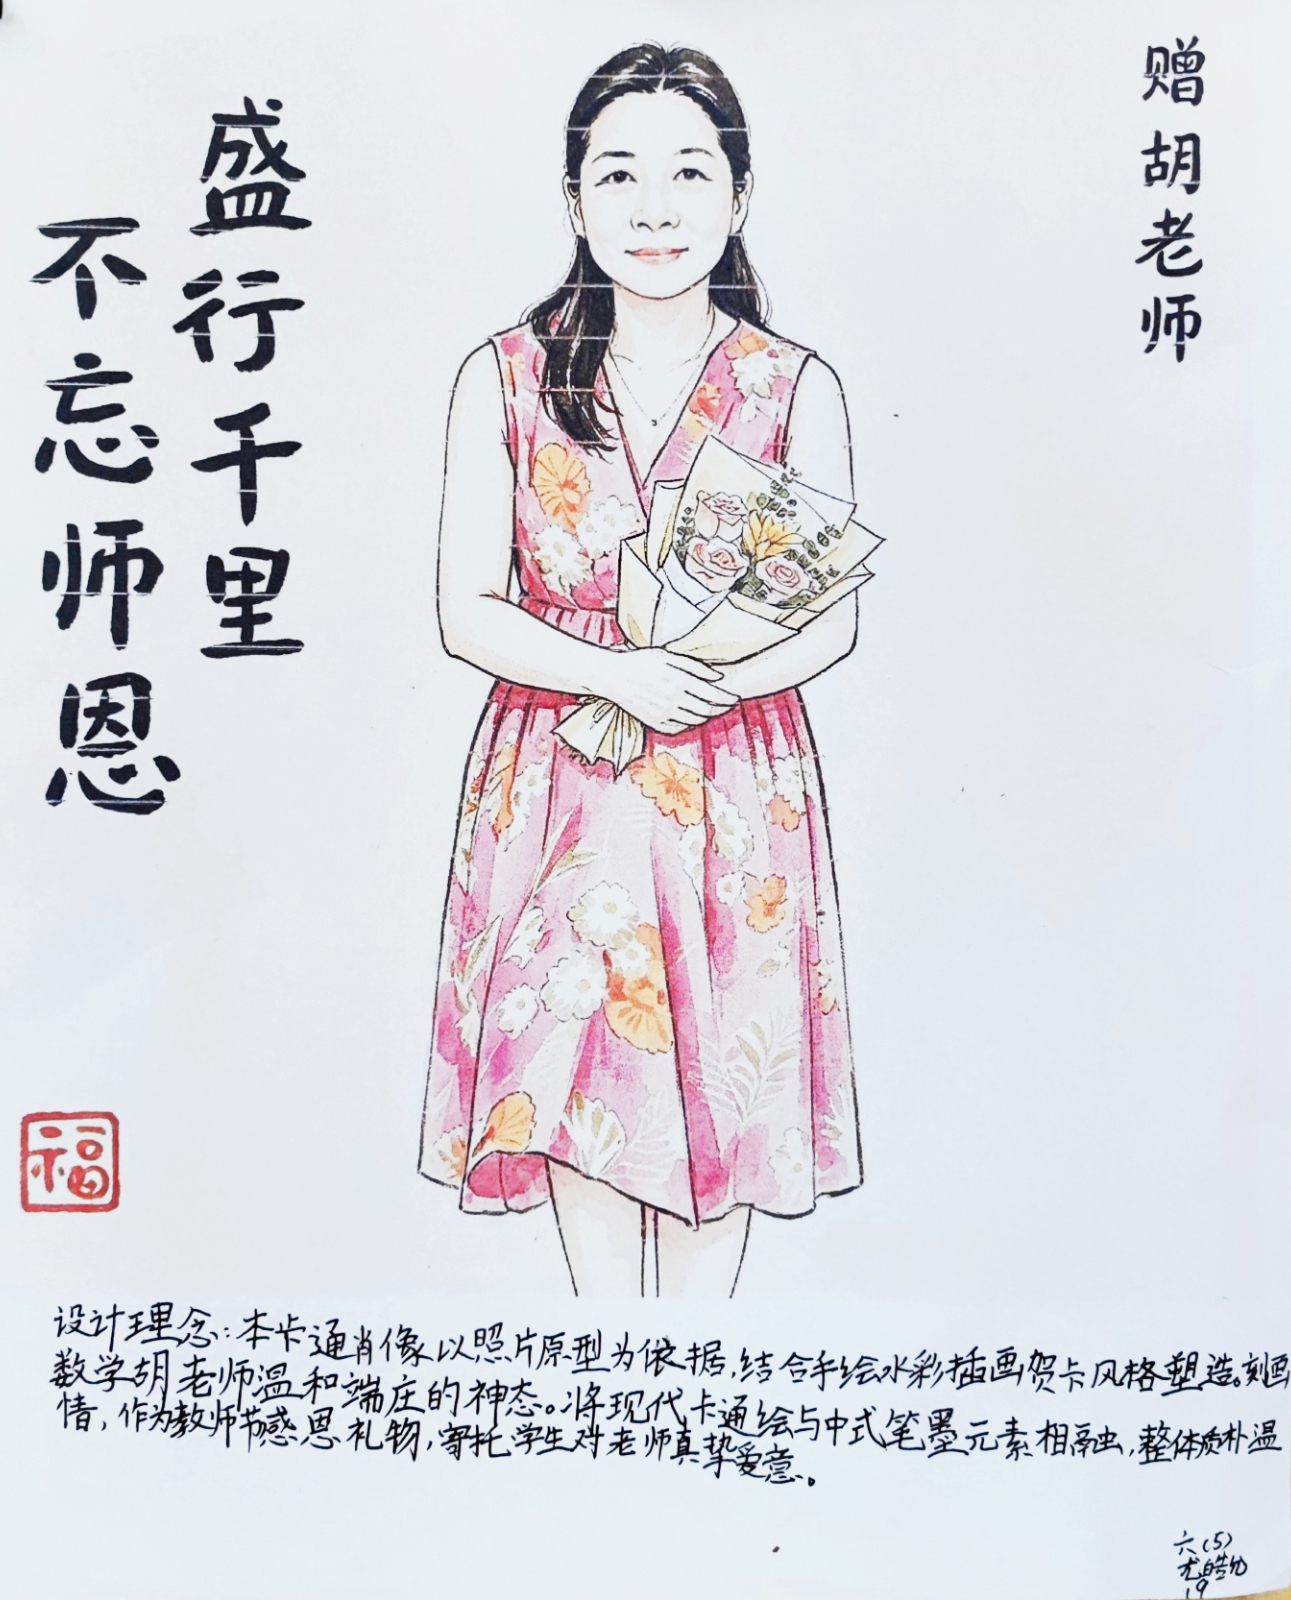 赠胡老师
盛行千里
不忘师恩
福
设计理念:本卡通肖像以照片原型为依据,结合手绘水彩插画贺卡风格塑造。刻画
数学胡老师温和端庄的神态。将现代卡通绘与中式笔墨元素相融,整体质朴温
情,作为教师节感恩礼物,寄托学生对老师真挚爱意。
六(5)
尤皓
19